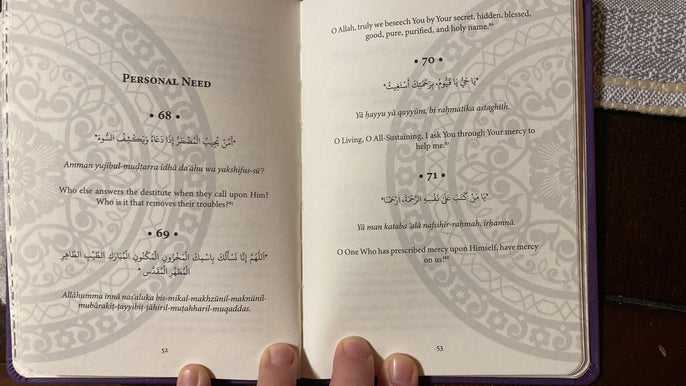 PERSONAL NEED
• 68 •
"أَمَّنْ يُجِيبُ الْمُضْطَرَّ إِذَا دَعَاهُ وَيَكْشِفُ السُّوءَ"
Amman yujībul-muḍtarra idhā da'āhu wa yakshifus-sū'?
Who else answers the destitute when they call upon Him?
Who is it that removes their troubles?
• 69 •
"اَللّٰهُمَّ إِنَّا نَسْأَلُكَ بِاسْمِكَ الْمَخْزُونِ الْمَكْنُونِ الْمُبَارَكِ الطَّيِّبِ الطَّاهِرِ
الْمُطَهَّرِ الْمُقَدَّسِ"
Allāhumma innā nas'aluka bis-mikal-makhzūnil-maknūnil-
mubārakiṭ-ṭayyibiṭ-ṭāhiril-muṭahharil-muqaddas.
52
O Allah, truly we beseech You by Your secret, hidden, blessed,
good, pure, purified, and holy name.
• 70 •
"يَا حَيُّ يَا قَيُّومُ، بِرَحْمَتِكَ أَسْتَغِيثُ"
Yā ḥayyu yā qayyūm, bi raḥmatika astaghīth.
O Living, O All-Sustaining, I ask You through Your mercy to
help me.
• 71 •
"يَا مَنْ كَتَبَ عَلَى نَفْسِهِ الرَّحْمَةَ، اِرْحَمْنَا"
Yā man kataba 'alā nafsihir-raḥmah, irḥamnā.
O One Who has prescribed mercy upon Himself, have mercy
on us!
53